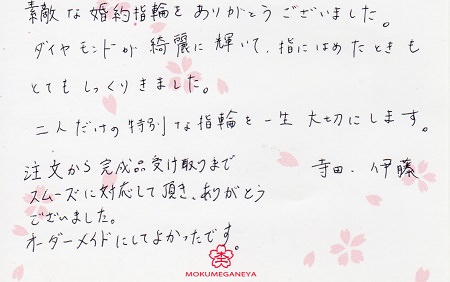 素敵な婚約指輪をありがとうございました。
ダイヤモンドが綺麗に輝いて、指にはめたときも
とてもしっくりきました。
二人だけの特別な指輪を一生大切にします。
寺田、伊藤
注文から完成品受け取りまで
スムーズに対応して頂き、ありがとう
ございました。
オーダーメイドにしてよかったです。
MOKUMEGANEYA